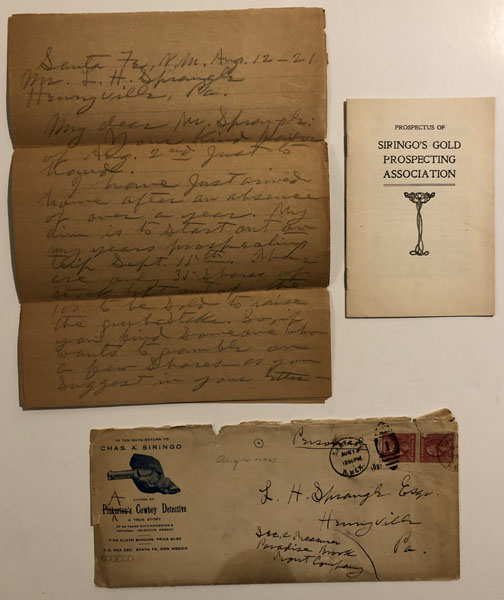 Santa Fe, N.M. Aug. 12-21
Mr. L. H. Sprangle
Henryville, Pa.
My dear Mr. Sprangle:
Your kind favor
of Aug. 2nd just to
hand.
I have just arrived
home after an absence
of over a year. My
aim is to start out on
my years prospecting
trip Sept. 15th. There
are over 35 shares of
stock left out of the
100 to be sold to raise
the grubstake. So, if
you find someone who
wants to gamble on
a few shares - as you
suggest in your letter -
PROSPECTUS OF
SIRINGO'S GOLD
PROSPECTING
ASSOCIATION
IN TEN DAYS RETURN TO
CHAS. A. SIRINGO
AUTHOR OF
A
Pinkerton's Cowboy Detective
A TRUE STORY
OF 22 YEARS WITH PINKERTON'S
NATIONAL DETECTIVE AGENCY
FINE CLOTH BINDING, PRICE $1.50
P. O. BOX 322, SANTA FE, NEW MEXICO
Personal
SANTA FE
AUG 12
12 PM
1921
N. MEX.
L. H. Sprangle Esq.
Henryville
Pa.
Sec. & Treasurer
Paradise Brook
Trout Company